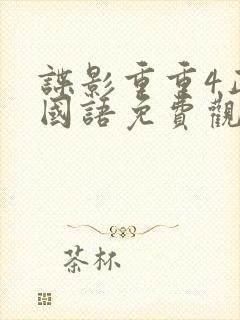 諜影重重4
國語免費觀
茶杯